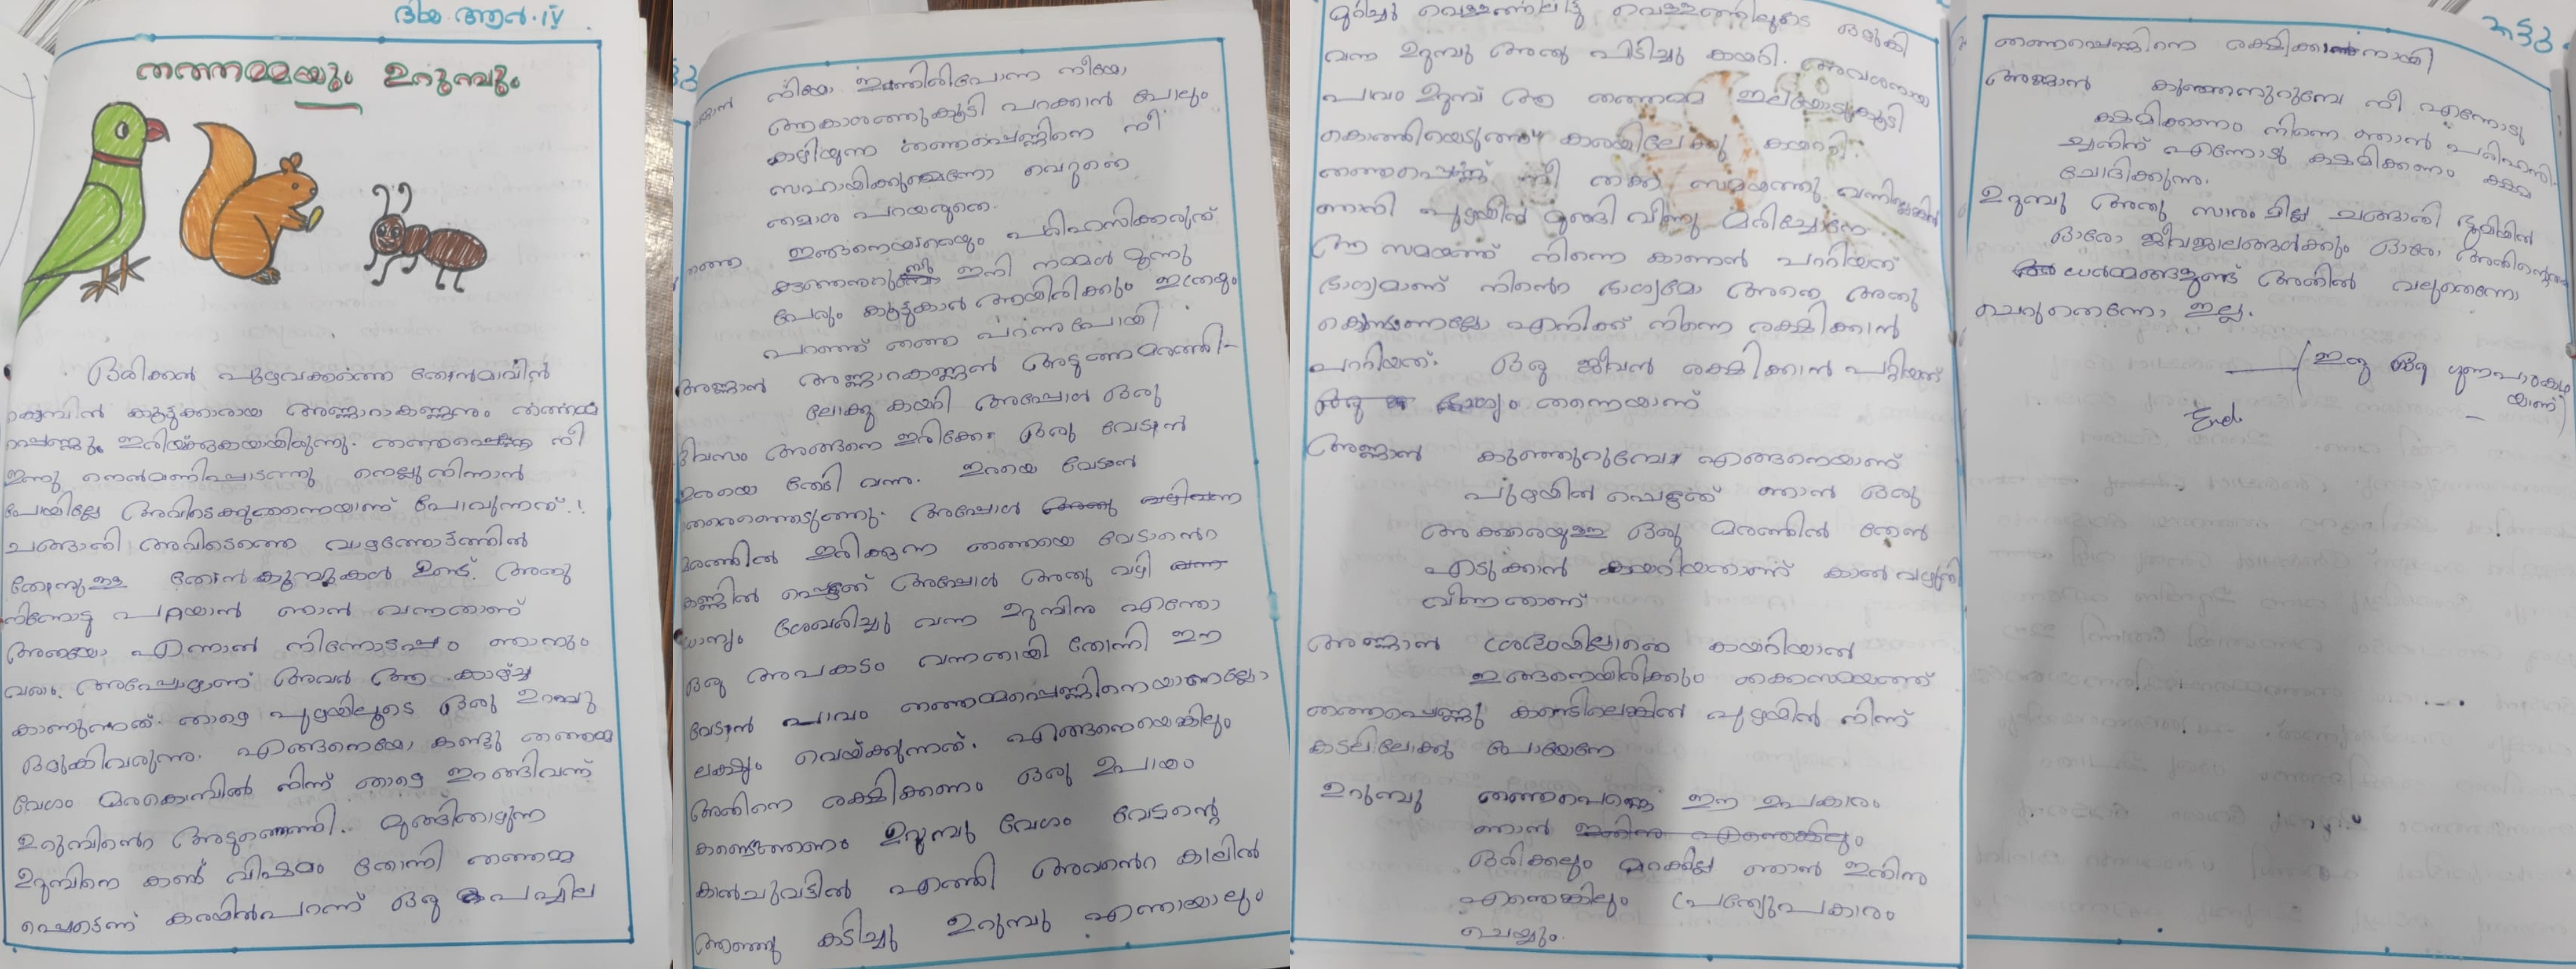 ദിയ ആൻ. IV
തത്തമ്മയും ഉറുമ്പും
ഒരിക്കൽ പുഴവക്കത്തെ തേൻമാവിൻ
കൊമ്പിൽ കൂട്ടുക്കാരായ അണ്ണാറാകണ്ണനും തത്തമ്മ
പ്പെണ്ണും ഇരിയ്ക്കുകയായിരുന്നു. തത്തപ്പെണ്ണേ നീ
ഇന്നു നെൻമണിപ്പാടത്തു നെല്ലുതിന്നാൻ
പോയില്ലേ അവിടെക്കുതന്നെയാണ് പോവുന്നത്.!
ചങ്ങാതി അവിടെത്തെ വാഴത്തോട്ടത്തിൽ
തേനുള്ള തേൻകൂമ്പുകൾ ഉണ്ട്. അതു
നിന്നോടു പറയാൻ ഞാൻ വന്നതാണ്
അതെയോ എന്നാൽ നിന്നോടപ്പം ഞാനും
വരാം. അപ്പോഴാണ് അവർ ആ കാഴ്ച്ച
കാണുന്നത്. താഴെ പുഴയിലൂടെ ഒരു ഉറുമ്പു
ഒഴുകിവരുന്നു. എങ്ങനെയോ കണ്ടു തത്തമ്മ
വേഗം മരകൊമ്പിൽ നിന്ന് താഴെ ഇറങ്ങിവന്ന്
ഉറുമ്പിന്റെ അടുത്തെത്തി.. മുങ്ങിതാഴുന്ന
ഉറുമ്പിനെ കണ്ട് വിഷമം തോന്നി തത്തമ്മ
പ്പെടെന്ന് കരയിൽപറന്ന് ഒരു പച്ചില
മുറിച്ചു വെള്ളത്തിലിട്ടു വെള്ളത്തിലൂടെ ഒഴുകി
വന്ന ഉറുമ്പു അതു പിടിച്ചു കയറി. അവശനായ
പാവം ഉറുമ്പ് ആ തത്തമ്മ ഇലയോടുകൂടി
കൊത്തിയെടുത്ത് കരയിലേക്കു കയറ്റി.
തത്തപ്പെണ്ണേ നീ തക്ക സമയത്തു വന്നില്ലെങ്കിൽ
ഞാനി പുഴയിൽ മുങ്ങി വീണു മരിച്ചേനേ
ആ സമയത്ത് നിന്നെ കാണാൻ പറ്റിയത്
ഭാഗ്യമാണ് നിന്റെ ഭാഗ്യമോ അതെ അതു
കൊണ്ടാണല്ലോ എനിക്ക് നിന്നെ രക്ഷിക്കാൻ
പറ്റിയത്. ഒരു ജീവൻ രക്ഷിക്കാൻ പറ്റിയത്
ഭാഗ്യം തന്നെയാണ്
അണ്ണാൻ കുഞ്ഞുറുമ്പേ എങ്ങനെയാണ്
പുഴയിൽ പെട്ടത് ഞാൻ ഒരു
അക്കരെയുള്ള ഒരു മരത്തിൽ തേൻ
എടുക്കാൻ കയറിയതാണ് കാൽ വഴുതി
വീണതാണ്
അണ്ണാൻ ശ്രദ്ധയില്ലാതെ കയറിയാൽ
ഇങ്ങനെയിരിക്കും തക്കസമയത്ത്
തത്തപ്പെണ്ണു കണ്ടിലെങ്കിൽ പുഴയിൽ നിന്ന്
കടലിലേക്കു പോയേനേ
ഉറുമ്പു തത്തപെണ്ണേ ഈ ഉപകാരം
ഞാൻ ഇതിനു എന്തെങ്കിലും
ഒരിക്കലും മറക്കില്ല ഞാൻ ഇതിനു
എന്തെങ്കിലും പ്രത്യുപകാരം
ചെയ്യും.
നിയോ ഇത്തിരിപോന്ന നീയോ
ആകാശത്തുകൂടി പറക്കാൻ പോലും
കഴിയുന്ന തത്തപ്പെണ്ണിനെ നീ
സഹായിക്കുമെന്നോ വെറുതെ
തമാശ പറയരുതെ.
തത്ത ഇങ്ങനെയാരെയും പരിഹസിക്കരുത്
ഇനി നമ്മൾ മൂന്നു
പേരും കൂട്ടുകാർ ആയിരിക്കും ഇത്രയും
പറഞ്ഞ് തത്ത പറന്നുപോയി
അണ്ണാൻ അണ്ണാറകണ്ണൻ അടുത്തമരത്തി-
ലേക്കു കയറി അപ്പോൾ ഒരു
ദിവസം അങ്ങനെ ഇരിക്കേ ഒരു വേടൻ
ഇരയെ തേടി വന്നു. ഇരയെ വേടൻ
തരഞ്ഞെടുത്തു. അപ്പോൾ
മരത്തിൽ ഇരിക്കുന്ന തത്തയെ വേടാന്റെ
കണ്ണിൽ പെട്ടത് അപ്പോൾ അതു വഴി
ധാന്യം ശേഖരിച്ചു വന്ന ഉറുമ്പിനു എന്തോ
ഒരു അപകടം വന്നതായി തോന്നി ഈ
വേടൻ പാവം തത്തമ്മപെണ്ണിനെയാണല്ലോ
ലക്ഷ്യം വെയ്ക്കുന്നത്. എങ്ങനെയെങ്കിലും
അതിനെ രക്ഷിക്കണം ഒരു ഉപായം
കണ്ടെത്തണം ഉറുമ്പു വേഗം വേടന്റെ
കാൽചുവട്ടിൽ എത്തി അവന്റെ കാലിൽ
ആഞ്ഞു കടിച്ചു ഉറുമ്പു എന്തായാലും
തത്തപ്പെണ്ണിനെ രക്ഷിക്കാനായി
അണ്ണാൻ കുഞ്ഞനുറുമ്പേ നീ എന്നോടു
ക്ഷമിക്കണം നിന്നെ ഞാൻ പരിഹസി-
ച്ചതിന് എന്നോടു ക്ഷമിക്കണം ക്ഷമ
ചോദിക്കുന്നു.
ഉറുമ്പു അതു സാരം മില്ല ചങ്ങാതി ഭൂമിയിൽ
ഓരോ ജീവജാലങ്ങൾക്കും ഓരോ അതിന്റെതായ
ധർമ്മങ്ങളുണ്ട് അതിൽ വലുതെന്നോ
ചെറുതെന്നോ ഇല്ല.
(ഇതു ഒരു ഗുണപാഠകഥ
യാണ്)
End.